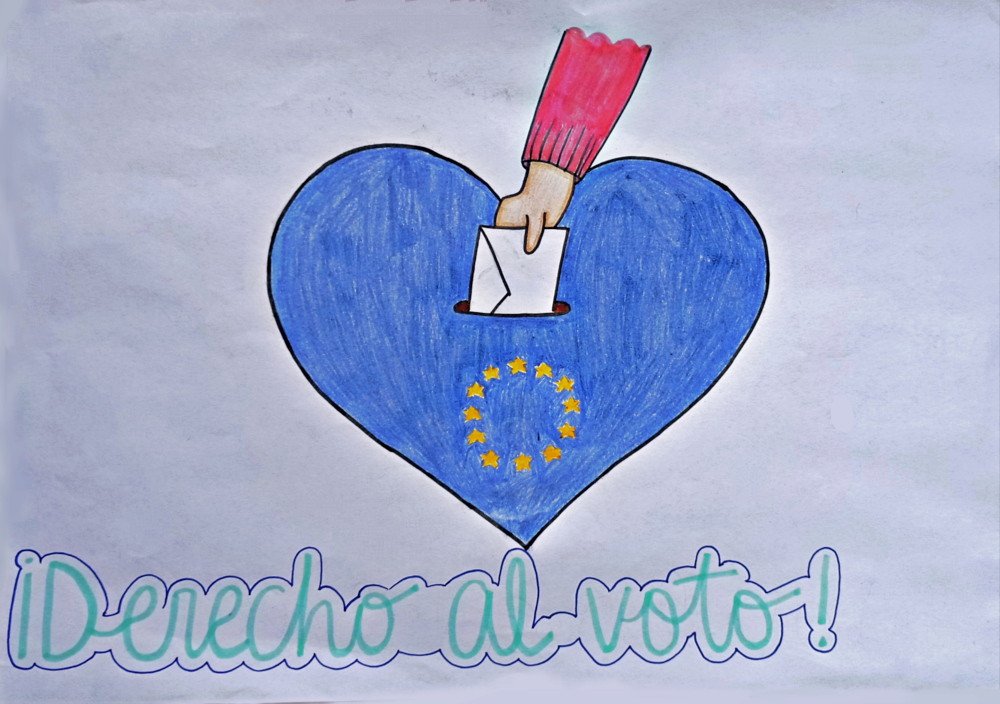 ¡Derecho al voto!